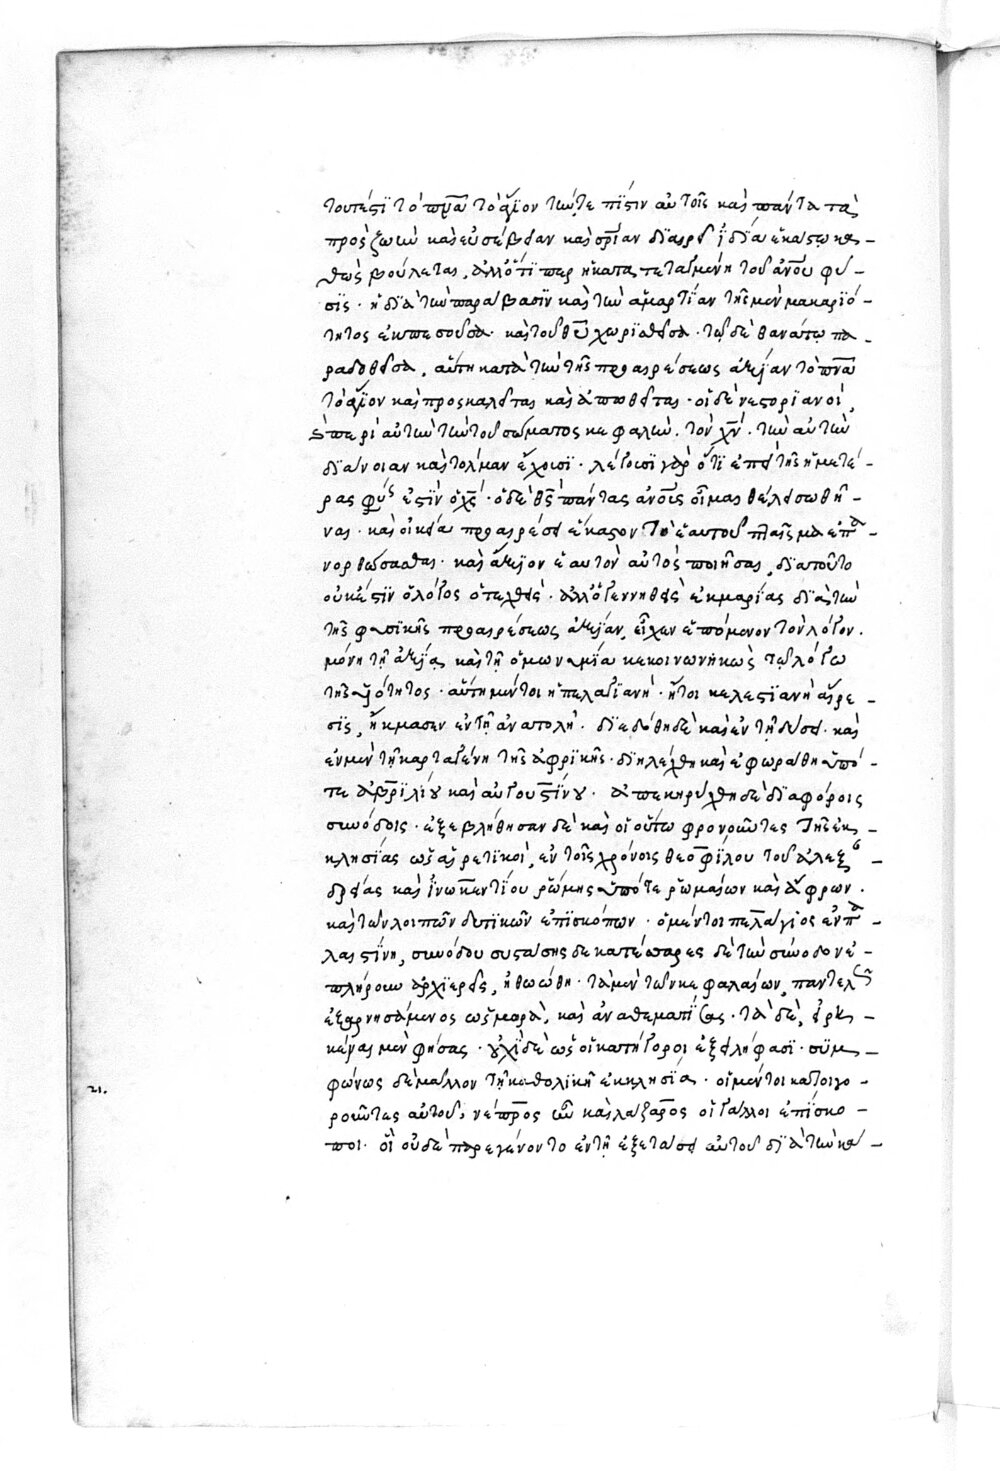 τουτέστϊ τὸ πνᾶ τὸ ἅγϊον τήν τε πϊστιν αὐτοῖς καὶ πάντα τὰ
πρὸς ζωὴν καὶ εὐσέβειαν καὶ σρΐαν δϊαιρεῖ ἰδία ἑκάστω κα-
θὼς βούλεται, ἀλλ' ὅτϊ περ ἡ κατατεταγμένη τοῦ ἀνοῦ φύ-
σϊς · ἡ δϊὰ τὴν παράβασϊν καὶ τὴν ἁμαρτΐαν τῆς μὲν μακαρϊό-
τητος ἐκπεσοῦσα · καὶ τοῦ θῦ χωρϊσθεῖσα · τῷ δὲ θανάτω πα-
ραδοθεῖσα, αὕτη κατὰ τὴν τῆς προαιρέσεως ἀξίαν τὸ πνᾶ
τὸ ἅγϊον καὶ προσκαλεῖται καὶ ἀπωθεῖται · οἱ δὲ νεστορϊανοὶ,
περὶ αὐτὴν τὴν τοῦ σώματος κεφαλὴν, τὸν χν · τὴν αὐτὴν
δϊάνοιαν καὶ τόλμαν ἔχουσϊ · λέγουσϊ γὰρ ὅτϊ ἐπεὶ τῆς ἡμετέ-
ρας φύσ ἐστϊν ὁ χς · ὁ δὲ θς πάντας ἀνοῦς ὁΐμας θέλει σωθῆ-
ναι · καὶ οἰκεία προαιρέσει ἕκαστον τὸ ἑαυτοῦ πταῖσμα ἐπα-
νορθώσασθαι · καὶ ἄξϊον ἑαυτὸν αὐτὸς ποιῆσαι, δϊατοῦτο
οὐκ ἔστϊν ὁ λόγος ὁ τεχθεὶς · ἀλλ' ὁ γεννηθεὶς ἐκ μαρίας δϊὰ τὴν
τῆς φυσϊκῆς προαιρέσεως ἀξίαν, εἶχεν ἑπόμενον τὸν λόγον ·
μόνη τῇ ἀξία καὶ τῇ ὁμωνυμΐα κεκοινωνηκὼς τῷ λόγω
τῆς θεότητος · αὕτη μέντοι ἡ πελαγϊανὴ · ἤτοι κελεστϊανὴ αἵρε-
σϊς, ἤκμασεν ἐν τῇ ἀνατολῇ · δϊεδόθη δὲ καὶ ἐν τῇ δύσει · καὶ
ἐν μὲν τῇ καρταγένη τῆς ἀφρϊκῆς · δϊηλέχθη καὶ ἐφωράθη ὑπό-
τε αὐρϊλίου καὶ αὐγουστΐνου · ἀπεκηρύχθη δὲ δϊαφόροις
συνόδοις · ἐξεβλήθησαν δὲ καὶ οἱ οὕτω φρονοῦντες τῆς ἐκ-
κλησίας ὡς αἱρετϊκοὶ, ἐν τοῖς χρόνοις θεοφΐλου τοῦ ἀλεξ-
δρείας καὶ ἰνωκεντΐου ῥώμης ὑπό τε ῥωμαίων καὶ ἄφρων ·
καὶ τῶν λοιπῶν δυτϊκῶν ἐπϊσκόπων · ὁ μέντοι πελάγϊος ἐν πα-
λαιστΐνη, συνόδου συστάσης δεκατέσσαρες δὲ τὴν σύνοδον ἐ-
πλήρουν ἀρχϊερεῖς, ἠθωώθη · τὰ μὲν τῶν κεφαλαίων, παντελῶς
ἐξαρνησάμενος ὡς μωρὰ, καὶ ἀναθεματΐσας · τὰ δὲ, εἰρη-
κέναι μὲν φήσας · οὐχὶ δὲ ὡς οἱ κατήγοροι ἐξειλήφασϊ · συμ-
φώνως δὲ μᾶλλον τῇ καθολϊκῇ ἐκκλησϊα · οἱ μέντοι κατηγο-
ροῦντες αὐτοῦ, νέπρος ἦν καὶ λάζαρος οἱ γάλλοι ἐπίσκο-
ποι · οἳ οὐδὲ παρεγένοντο ἐν τῇ ἐξετάσει αὐτοῦ δϊὰ τὴν κα-
21.